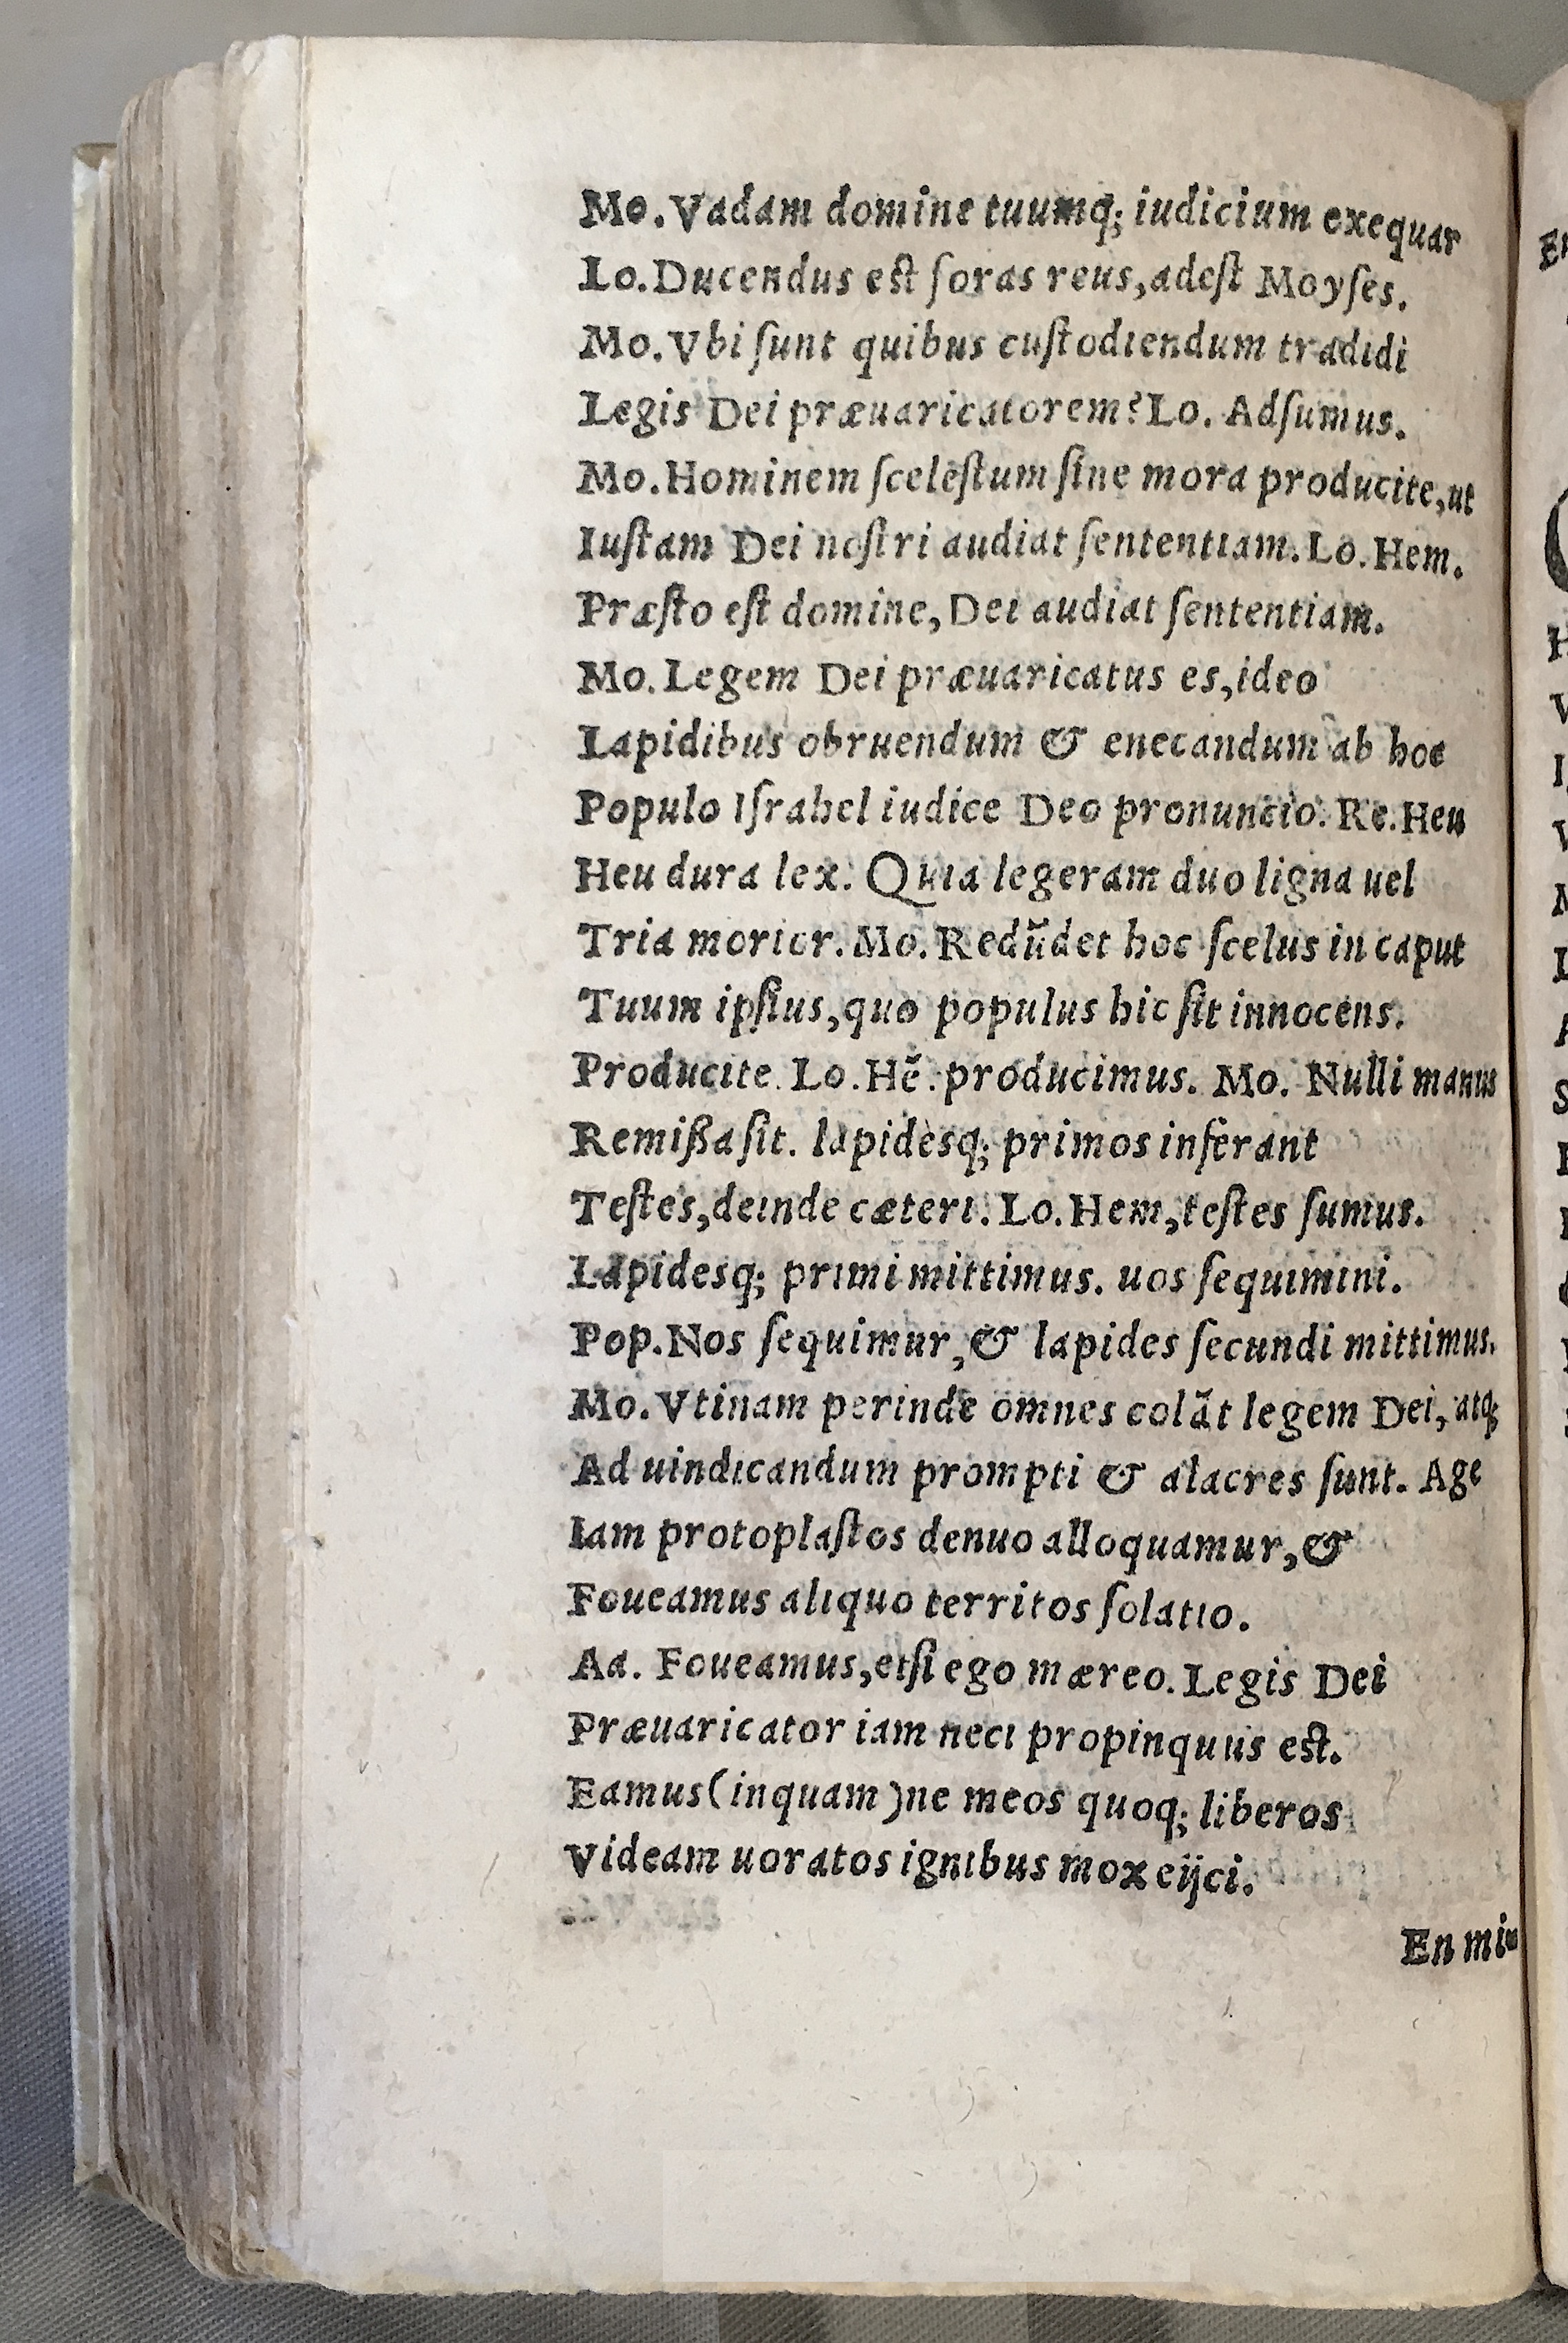 Mo. Vadam domine tuumq́; iudicium exequar
Lo. Ducendus est foras reus, adeſt Moyſes.
Mo. Vbi ſunt quibus cuſtodiendum tradidi
Legis Dei præuaricatorem? Lo. Adſumus.
Mo. Hominem ſceleſtum ſine mora producite, ut
Iuſtam Dei noſtri audiat ſententiam. Lo. Hem.
Præſto eſt domine, Dei audiat ſententiam.
Mo. Legem Dei præuaricatus es, ideo
Lapidibus obruendum & enecandum ab hoc
Populo Iſrahel iudice Deo pronuncio. Re. Heu
Heu dura lex. Quia legeram duo ligna uel
Tria morior. Mo. Redũdet hoc ſcelus in caput
Tuum ipſius, quo populus hic ſit innocens.
Producite. Lo. Hẽ. producimus. Mo. Nulli manus
Remißa ſit. lapidesq; primos inferant
Teſtes, deinde cæteri. Lo. Hem, teſtes ſumus.
Lapidesq; primi mittimus. uos ſequimini.
Pop. Nos ſequimur, & lapides ſecundi mittimus.
Mo. Vtinam perinde omnes colãt legem Dei, atq;
Ad uindicandum prompti & alacres ſunt. Age
Iam protoplaſtos denuo alloquamur, &
Foueamus aliquo territos ſolatio.
Aa. Foueamus, etſi ego mæreo. Legis Dei
Præuaricator iam neci propinquus est.
Eamus (inquam) ne meos quoq; liberos
Videam uoratos ignibus mox eijci.
En mi